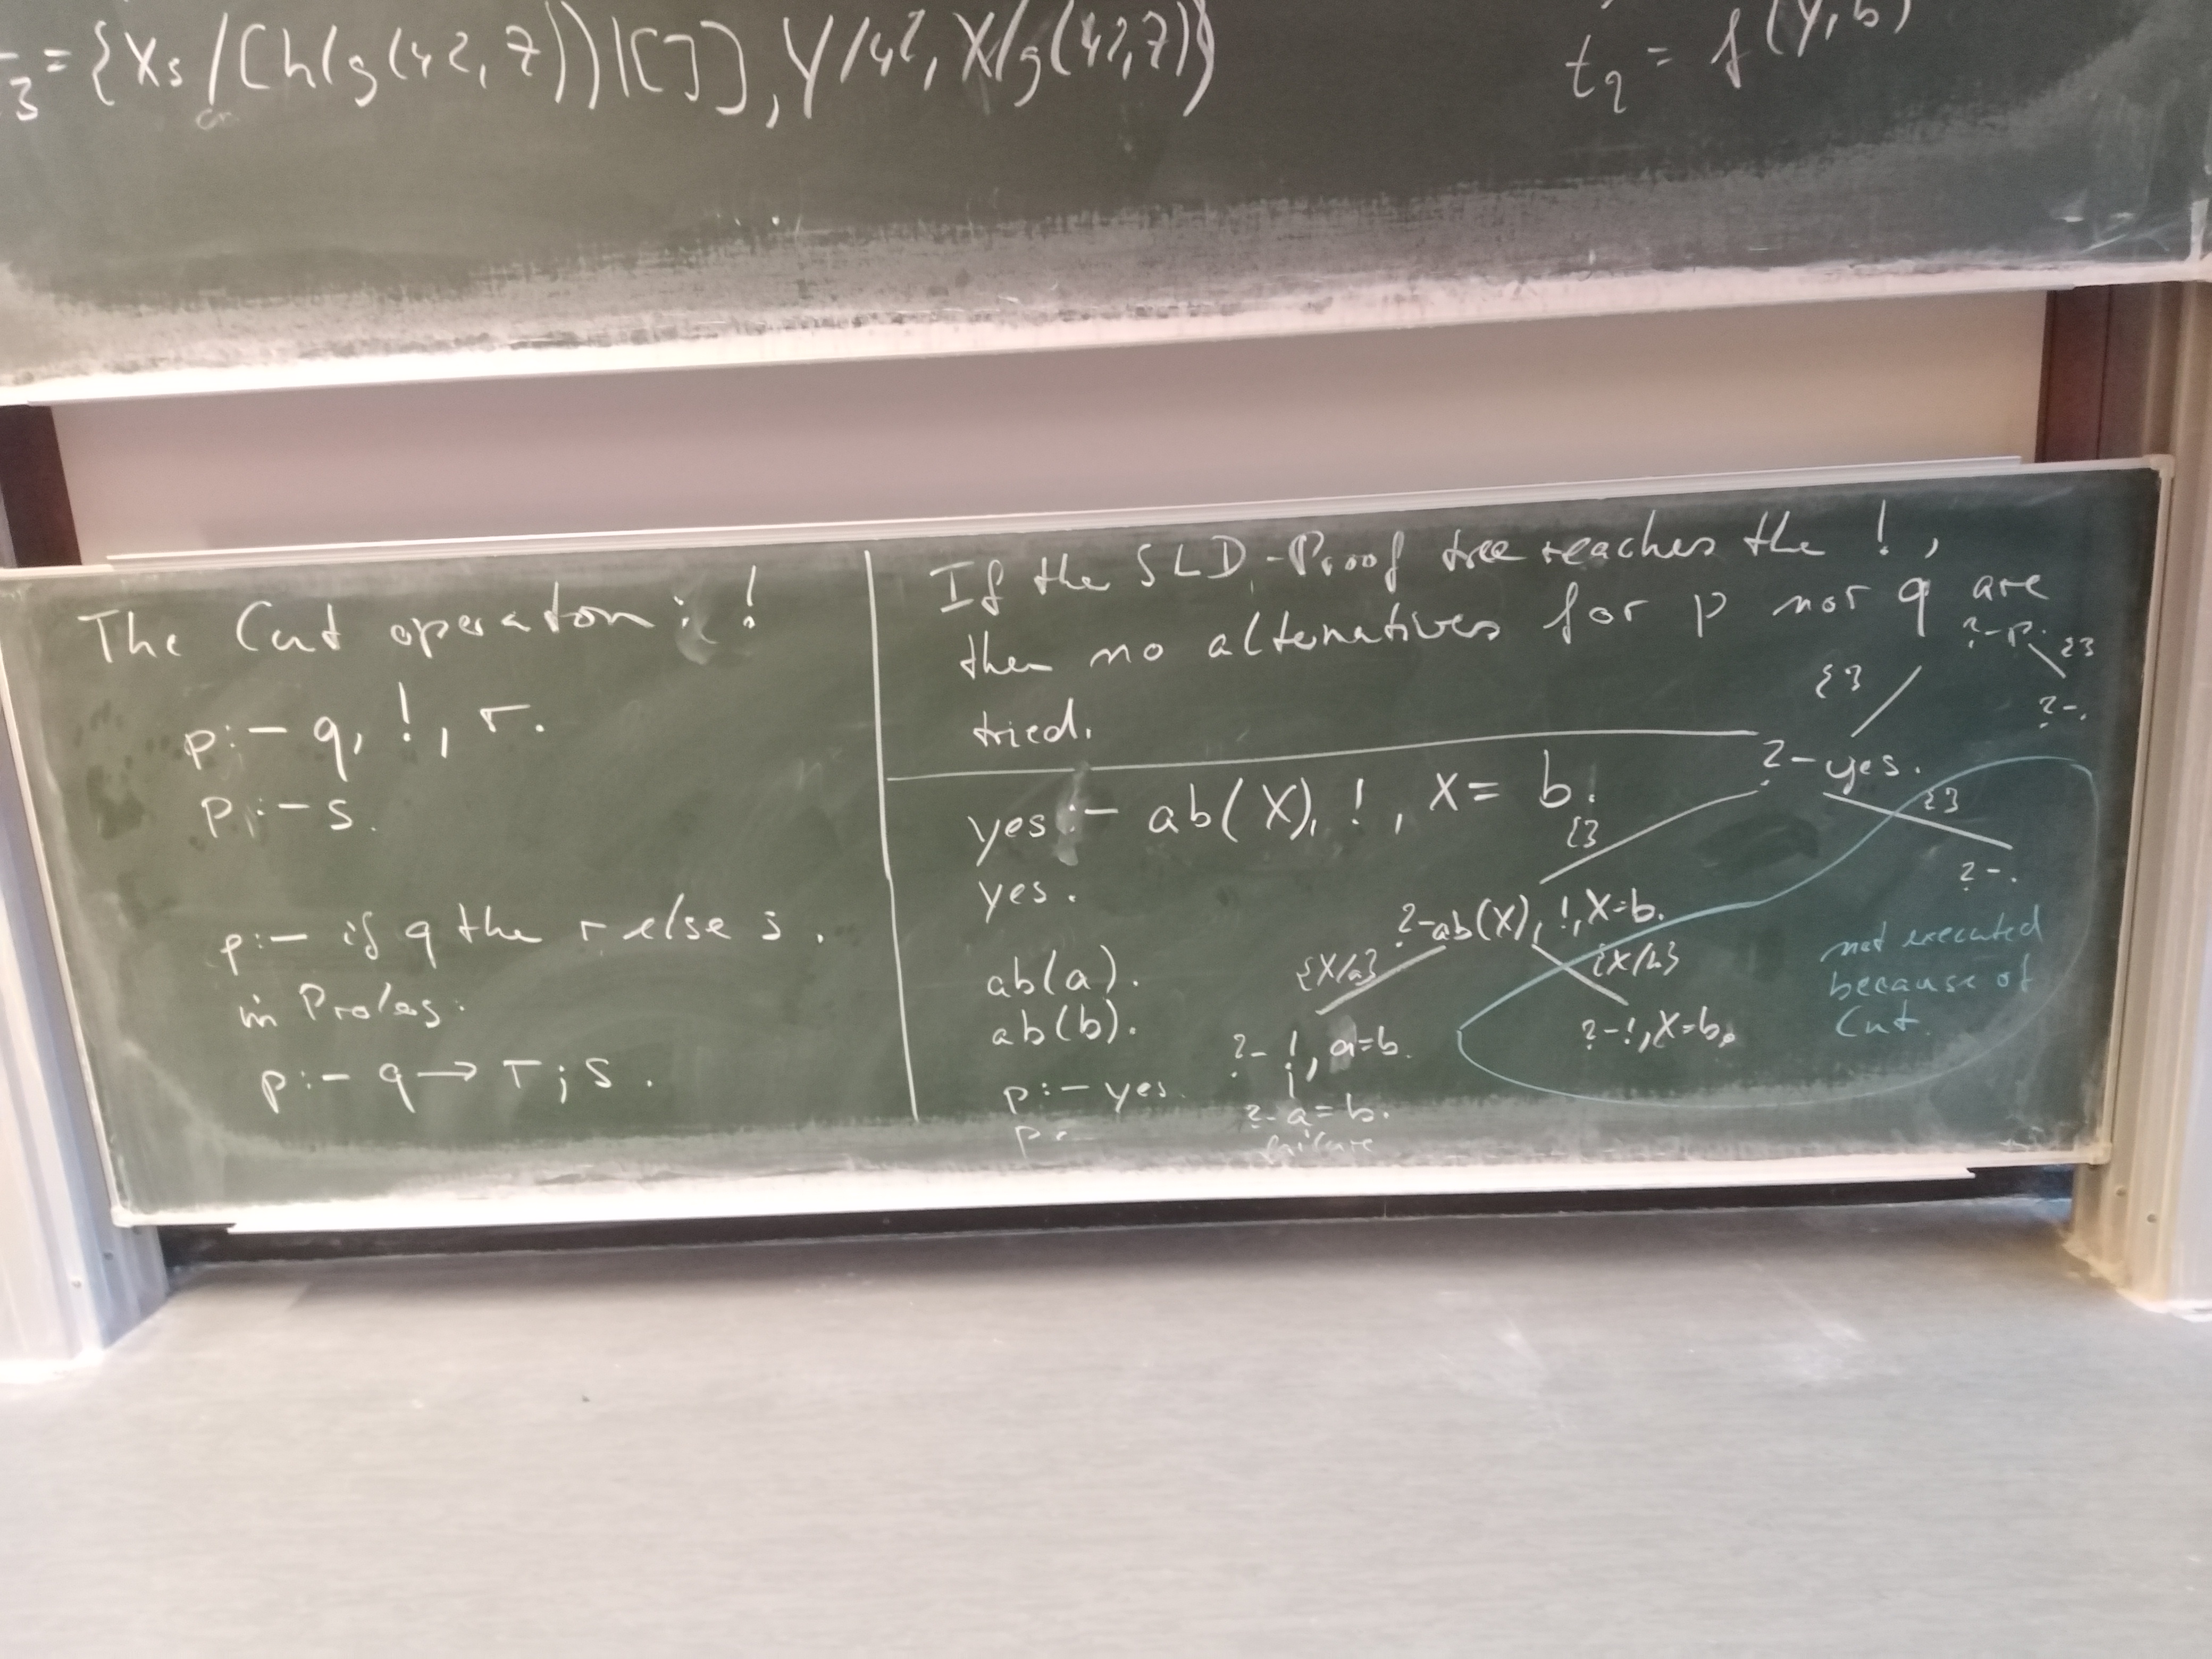 3 = {Xs/[h(g(42,7))|[]], Y/42, X/g(42,7)}
t2 = f(Y,b)
The Cut operator: !
p:- q, !, r.
p:- s.
p:- if q the r else s.
in Prolog.
p:- q → r ; s.
If the SLD-Proof tree reaches the !,
then no alternatives for p nor q are
tried.
yes :- ab(X), !, X = b.
yes.
ab(a).
ab(b).
p:- yes.
p.
?- p.
{}
{}
?-.
?- yes.
{}
{}
?-.
?- ab(X), !, X=b.
{X/a}
{X/b}
?- !, a=b.
?- !, X=b.
?- a=b.
failure
not executed
because of
Cut.